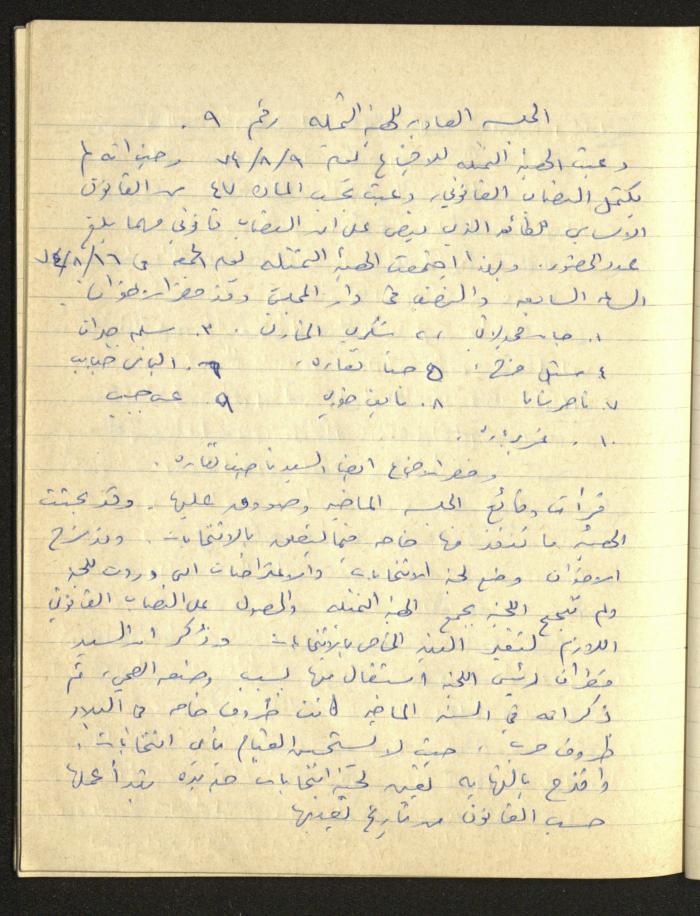 الجلسه العاديه للهيئة الممثله رقم ٩ .
دعيت الهيئة الممثله للاجتماع ليوم ٧٤/٨/٩ وحيث انه لم
يكتمل النصاب القانوني، دعيت حسب الماده ٤٧ من القانون
الاساسي للطائفه الذي ينص على ان النصاب قانوني مهما بلغ
عدد الحضور. ولهذا اجتمعت الهيئة الممثله يوم الجمعه في ٧٤/٨/١٦
الساعه السابعه والنصف في دار المجلس وقد حضر الاخوان:
١. ٢. شكري الخازن. ٣. سليم جدران
٤. فرح، ٥ حنا نقاره، ٦. الياس
٧. ناصر ٨. نايف خوري ٩. حبيب
١٠.
وحضر الاجتماع ايضا السيد نقاره.
قرأت وقائع الجلسه الماضيه وصودق عليها. وقد بحثت
الهيئه ما تنفذ منها خاصه فيما يتعلق بالانتخابات. وقد شرح
الاخوان وضع لجنة الانتخابات والاعتراضات التي وردت للجنه
ولم تنجح اللجنه بجمع الهيئة الممثله والحصول على النصاب القانوني
اللازم لتنفيذ البند الخاص بالانتخابات وذكر ان السيد
رئيس اللجنه استقال منها بسبب وضعه الصحي، ثم
ذكر انه في السنه الماضيه كانت ظروف خاصه في البلاد
ظروف حرب، حيث لا يستحسن القيام بأي انتخابات.
واقترح بالنهايه تعيين لجنة انتخابات جديده تبدأ عملها
حسب القانون من تاريخ تعيينها